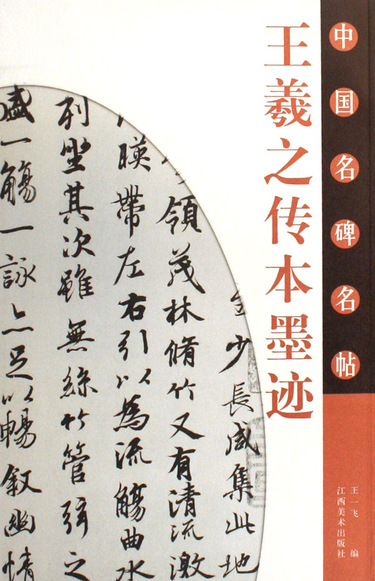 中国名碑名帖
王羲之传本墨迹
王一飞 编
江西美术出版社
至少長咸集此地
領茂林脩竹又有清流激
暎帶左右引以為流觴曲水
列坐其次雖無絲竹管弦之
盛一觴一詠亦足以暢叙幽情